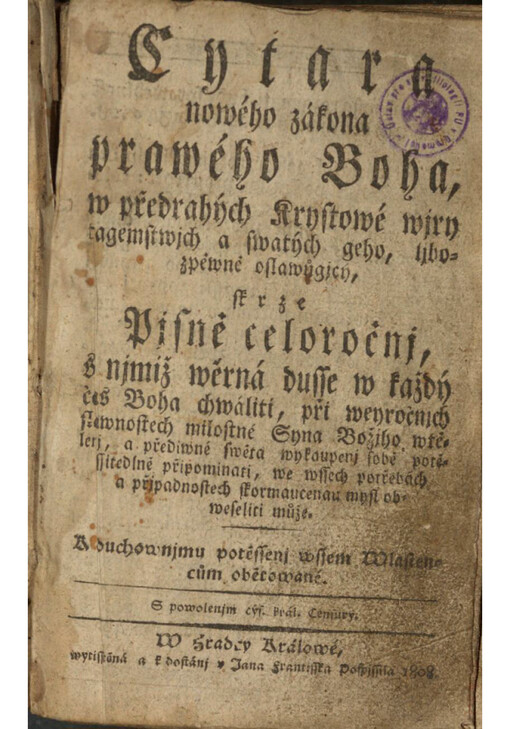 Cytara
nowého zákona
prawého Boha,
w předrahých Krystowé wjry
tagemstwjch a swatých geho, ljbo-
zpěwně oslawůgjcý,
skrze
Pjsně celoročnj,
s njmiž wěrná dusse w každý
čas Boha chwáliti, při weyročnjch
slawnostech milostné Syna Božjho wtě-
lenj, a předjwné swěta wykaupenj sobě potě-
ssitedlně připomjnati, we wssech potřebách
a přjpadnostech skormaucenau mysl ob-
weseliti může.
K duchownjmu potěssenj wssem Wlasten-
cům obětowané.
S powolenjm cýs. král. Censury.
W Hradcy Králowé,
wytisstěná a k dostánj v Jana Frantisska Pospjssila 1808.